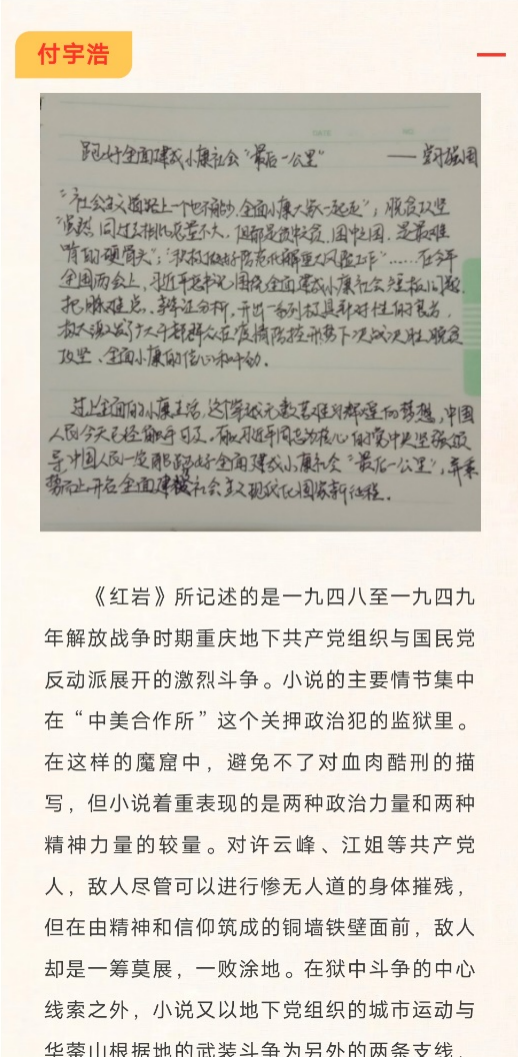 付宇浩
跑好全面建成小康社会“最后一公里”
—— 学习强国
“社会主义道路上一个也不能少，全面小康大家一起走”；脱贫攻坚
虽然同过去相比总量不大，但都是贫中之贫，困中之困，是最难
啃的硬骨头”；“积极做好防范化解重大风险工作”……在今年
全国两会上，习近平总书记围绕全面建成小康社会短板问题，
把脉难点、辩证分析，开出一系列极具针对性的良方，
极大激发了广大干部群众在疫情防控形势下决战决胜脱贫
攻坚、全面小康的信心和干劲。
过上全面的小康生活，这个穿越无数苦难与辉煌的梦想，中国
人民今天已经触手可及。有以习近平同志为核心的党中央坚强领
导，中国人民一定能跑好全面建成小康社会“最后一公里”，乘
势而上开启全面建设社会主义现代化国家新征程。
《红岩》所记述的是一九四八至一九四九
年解放战争时期重庆地下共产党组织与国民党
反动派展开的激烈斗争。小说的主要情节集中
在“中美合作所”这个关押政治犯的监狱里。
在这样的魔窟中，避免不了对血肉酷刑的描
写，但小说着重表现的是两种政治力量和两种
精神力量的较量。对许云峰、江姐等共产党
人，敌人尽管可以进行惨无人道的身体摧残，
但在由精神和信仰筑成的铜墙铁壁面前，敌人
却是一筹莫展，一败涂地。在狱中斗争的中心
线索之外，小说又以地下党组织的城市运动与
华蓥山根据地的武装斗争为另外的两条支线，